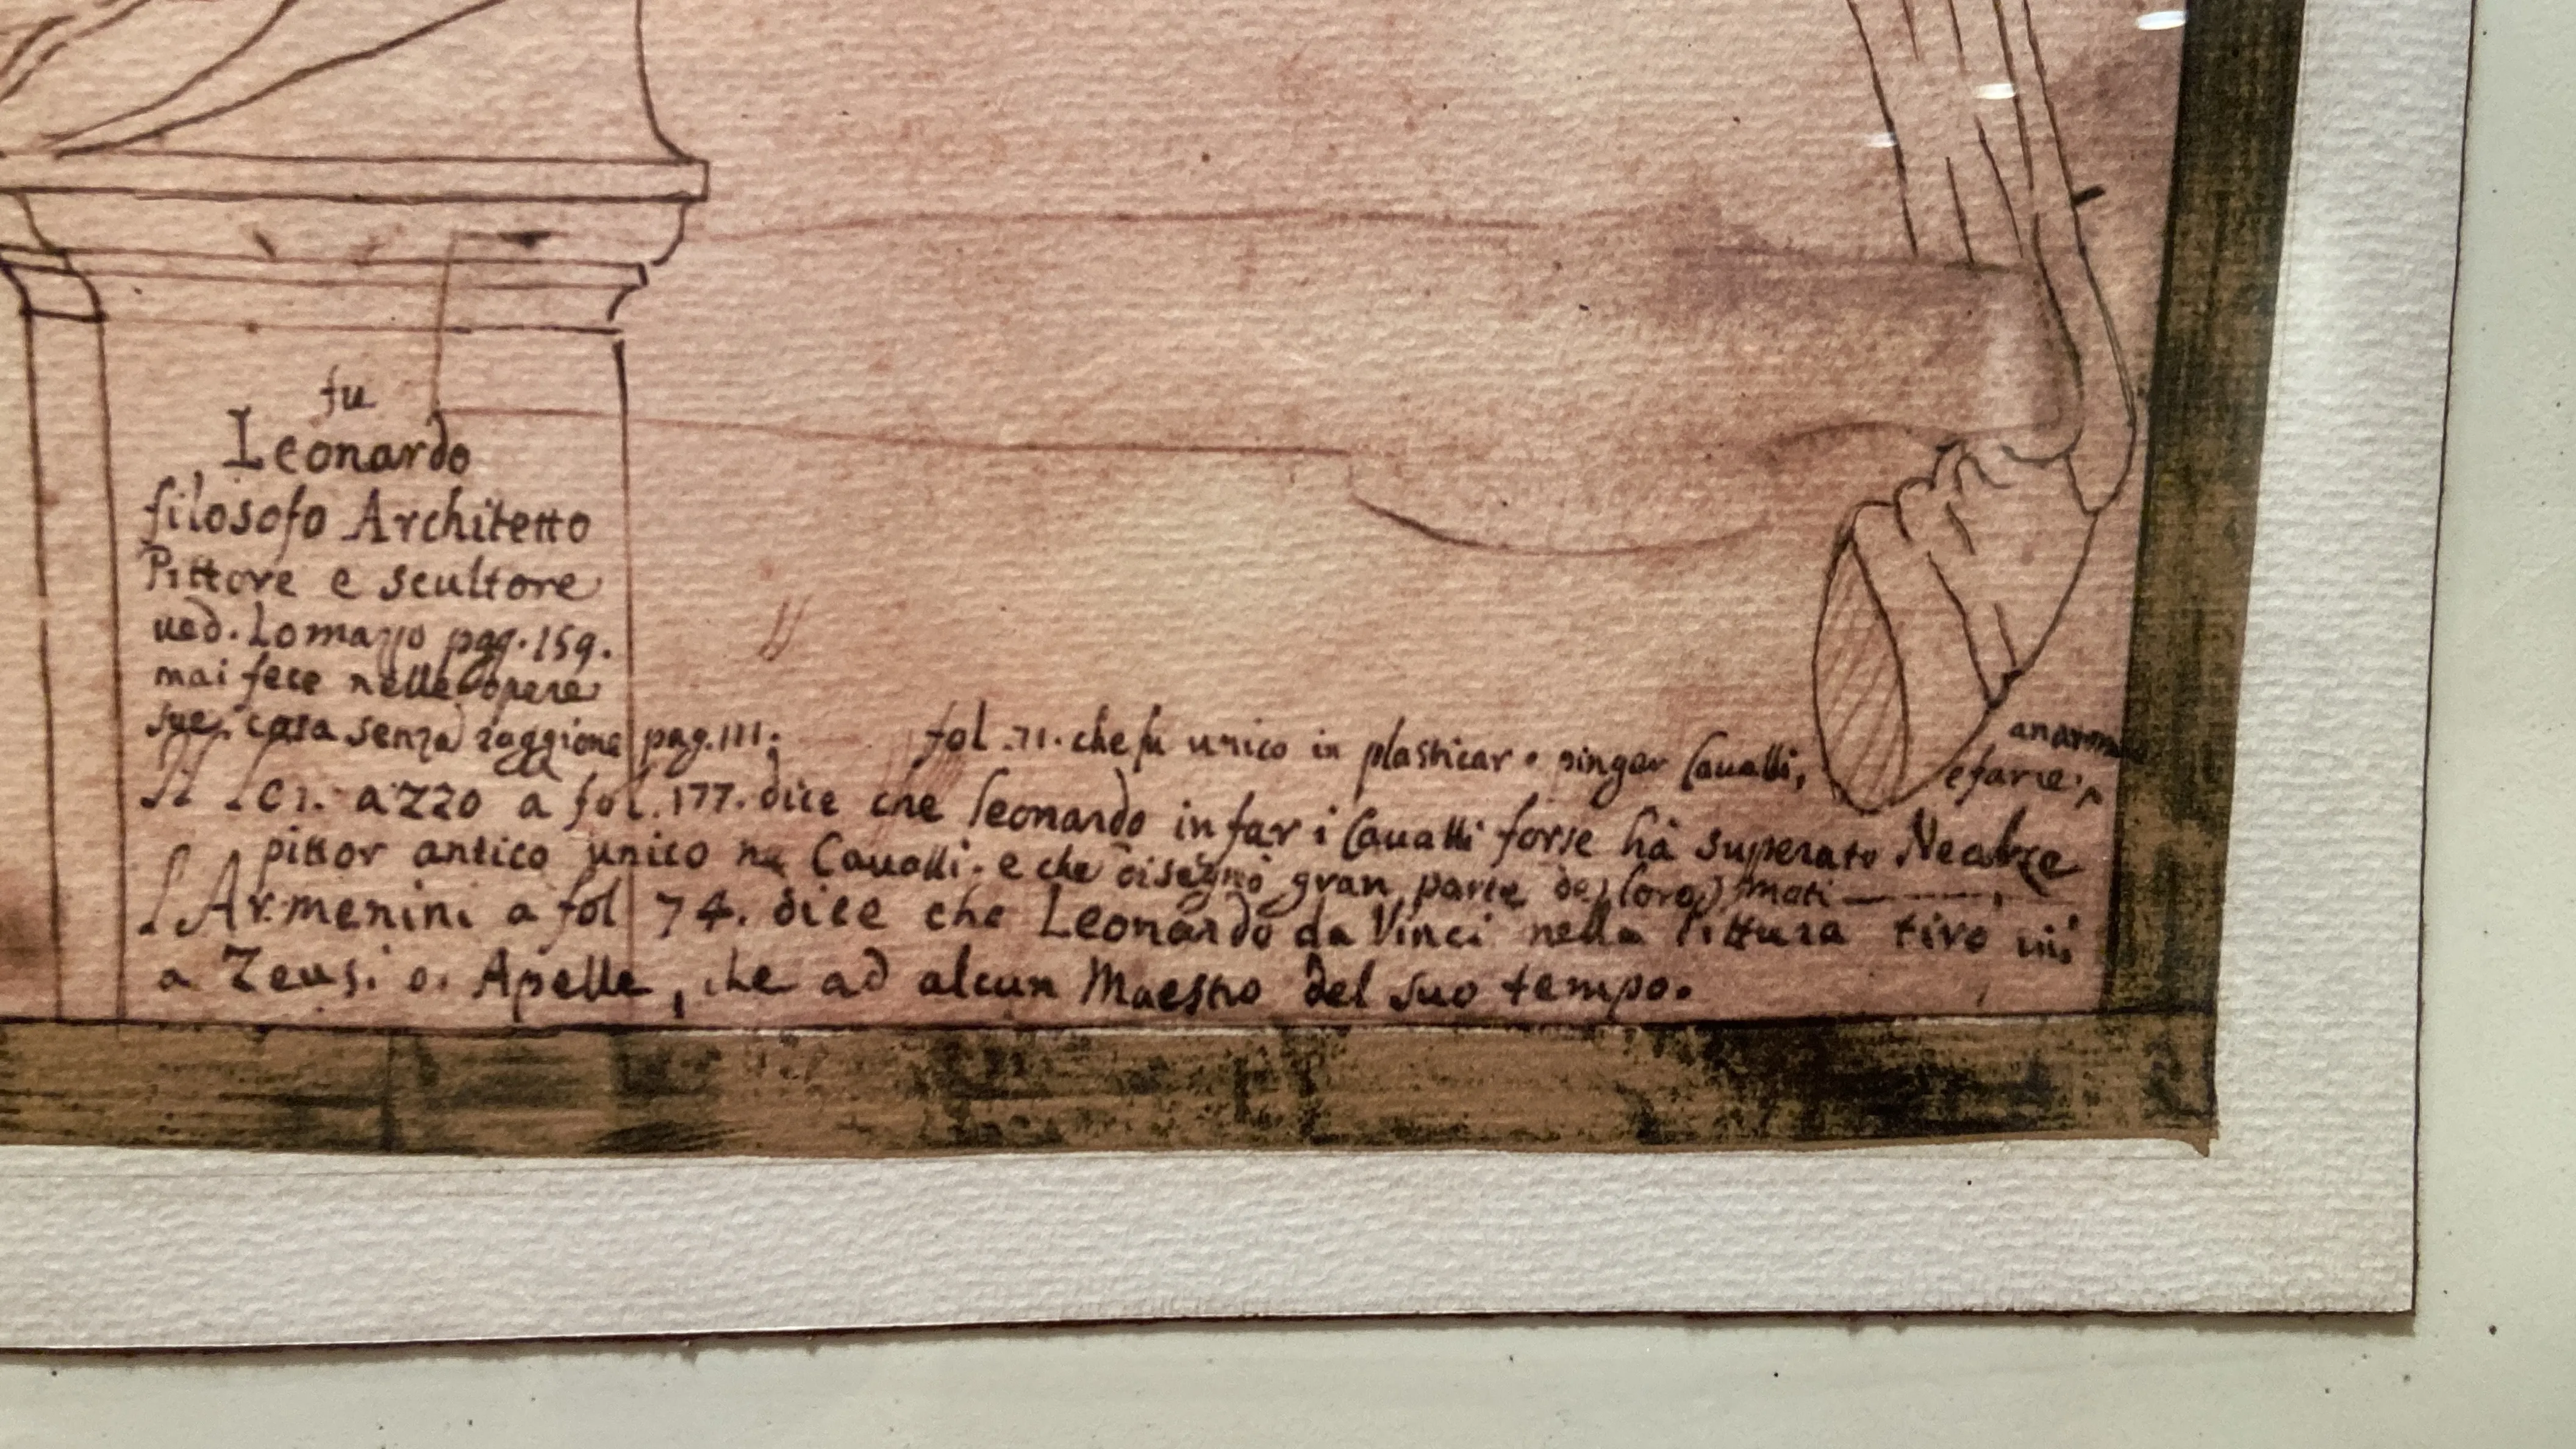 fu
Leonardo
filosofo Architetto
Pittore e scultore
ued. Lomazzo pag. 159.
mai fece nelle opere
sue cosa senza raggione pag. 111.
fol. 71. che fu unico in plasticar e pinger Caualli,
e farne
a fol. 177. dice che Leonardo in far i Caualli forse hà superato Nealce
pittor antico unico ne Caualli. e che disegnò gran parte de loro moti
l'Armenini a fol 74. dice che Leonardo da Vinci nella Pittura tirò più
a Zeusi o Apelle, che ad alcun Maestro del suo tempo.